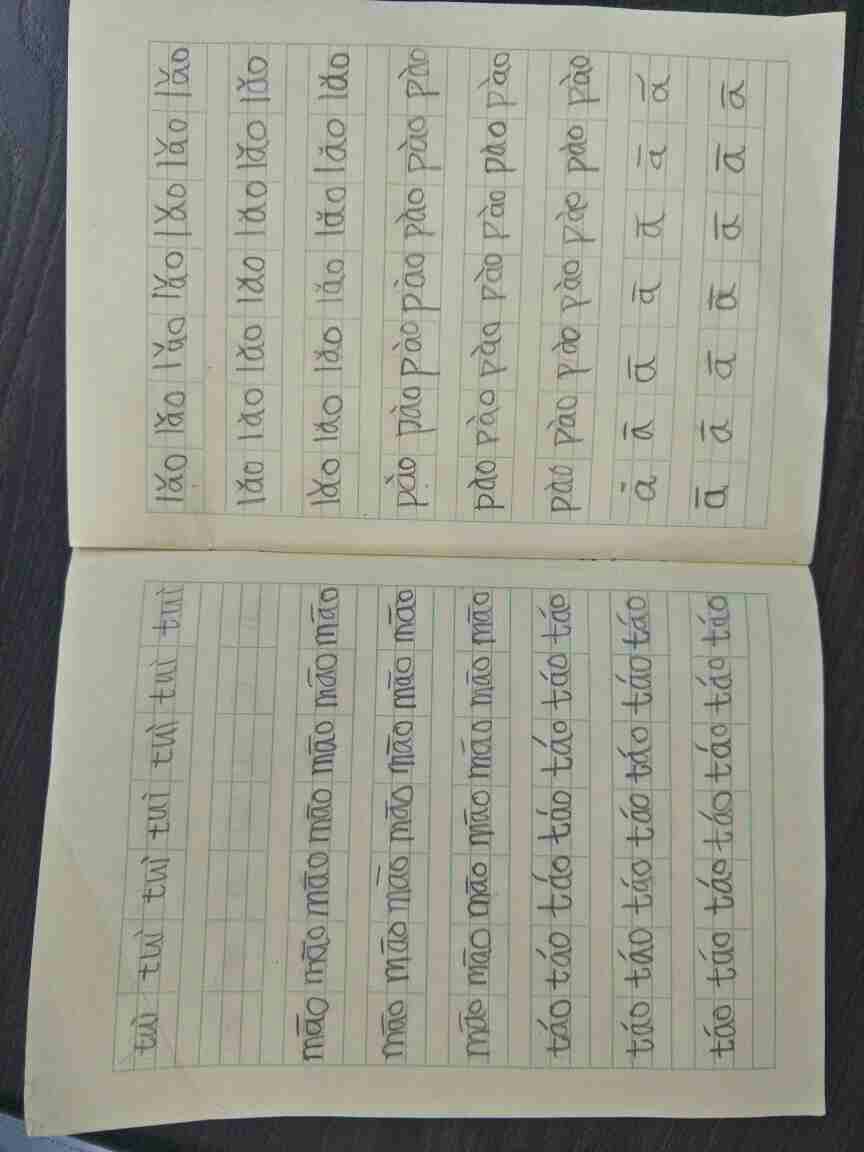 tuì tuì tuì tuì tuì tuì tuì
māo māo māo māo māo māo māo
māo māo māo māo māo māo māo
māo māo māo māo māo māo māo
táo táo táo táo táo táo táo
táo táo táo táo táo táo táo
táo táo táo táo táo táo táo
lǎo lǎo lǎo lǎo lǎo lǎo lǎo
lǎo lǎo lǎo lǎo lǎo lǎo lǎo
lǎo lǎo lǎo lǎo lǎo lǎo lǎo
pào pào pào pào pào pào pào
pào pào pào pào pào pào pào
pào pào pào pào pào pào pào
ā ā ā ā ā ā ā
ā ā ā ā ā ā ā